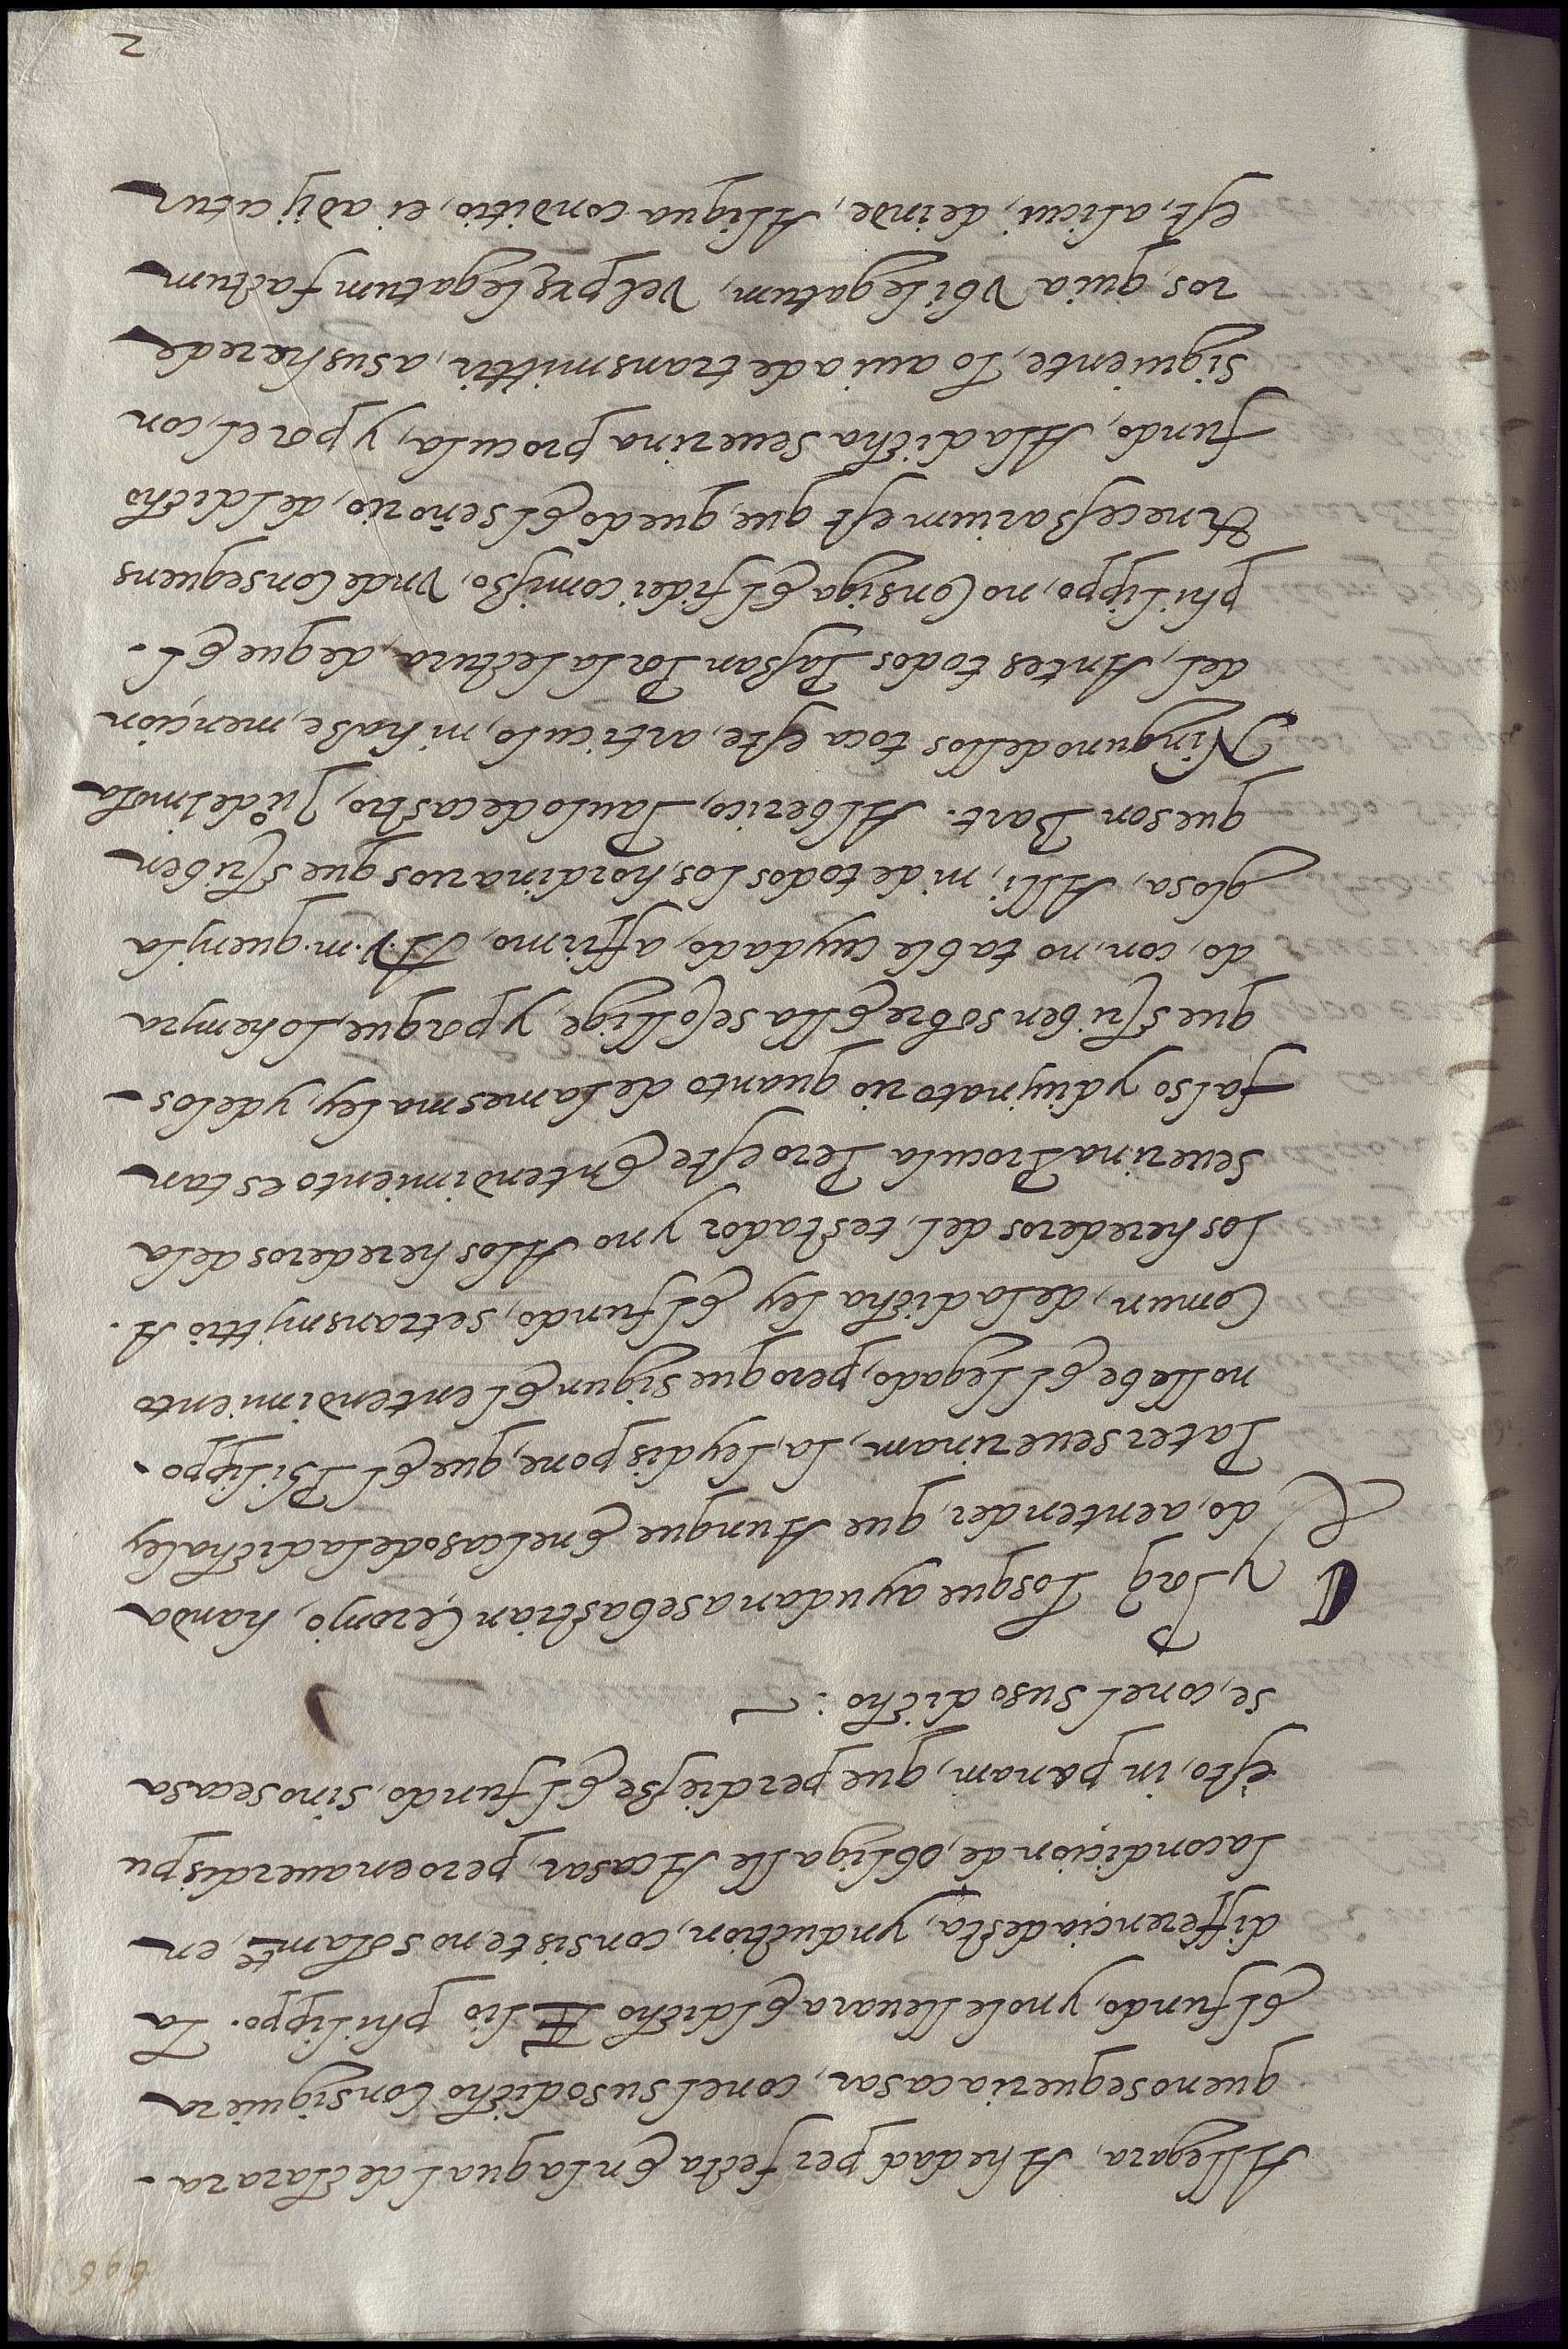 696
Allegara, A hedad perfecta En la qual declarara.
que no se queria casar, con el susodicho Consiguiera
El fundo, y no le lleuara El dicho Elio philippo. La
differençia desta, ynduction, consiste no solamte, en
la condiçion de, obligalle A casar, pero en auer dispu
esto, in pœnam, que perdiesse El fundo, sino se casa
se, con el suso dicho:
Y Paq Los que ayudan a sebastian Ceronjo, han da
do, a entender, que Aunque En el caso de la dicha ley
Pater seuerinam, la, ley dispone, que El Philippo.
no llebe El legado, pero que sigun El entendimiento
Comun, de la dicha ley El fundo, se transmyttio A.
los herederos del, testador y no A los herederos de la
Seuerina Procula Pero este Entendimiento es tan
falso y diuynatorio quanto de la mesma ley, y de los
que escriben sobre Ella se Collige, y porque, lo he myra
do, con, no table cuydado, affirmo, A V.m. que ny la
glosa, Alli, ni de todos los, hordinarios que escriben
que son Bart. Alberico, Paulo de castro, Juº de Imola
Ninguno dellos toca este, articulo, ni haße, mençion
del, Antes todos Passan Por la lectura, de que El.
philippo, no Consiga El fidei comisso, vnde Consequens
& necessarium est que, quedo El señorio, del dicho
fundo, A la dicha seuerina procula, y por el, con
siguiente, lo auia de transmittir, a sus herede
ros, quia vbi legatum, vel prelegatum factum
est, alicui, deinde, Aliqua conditio, ei adijcitur
2